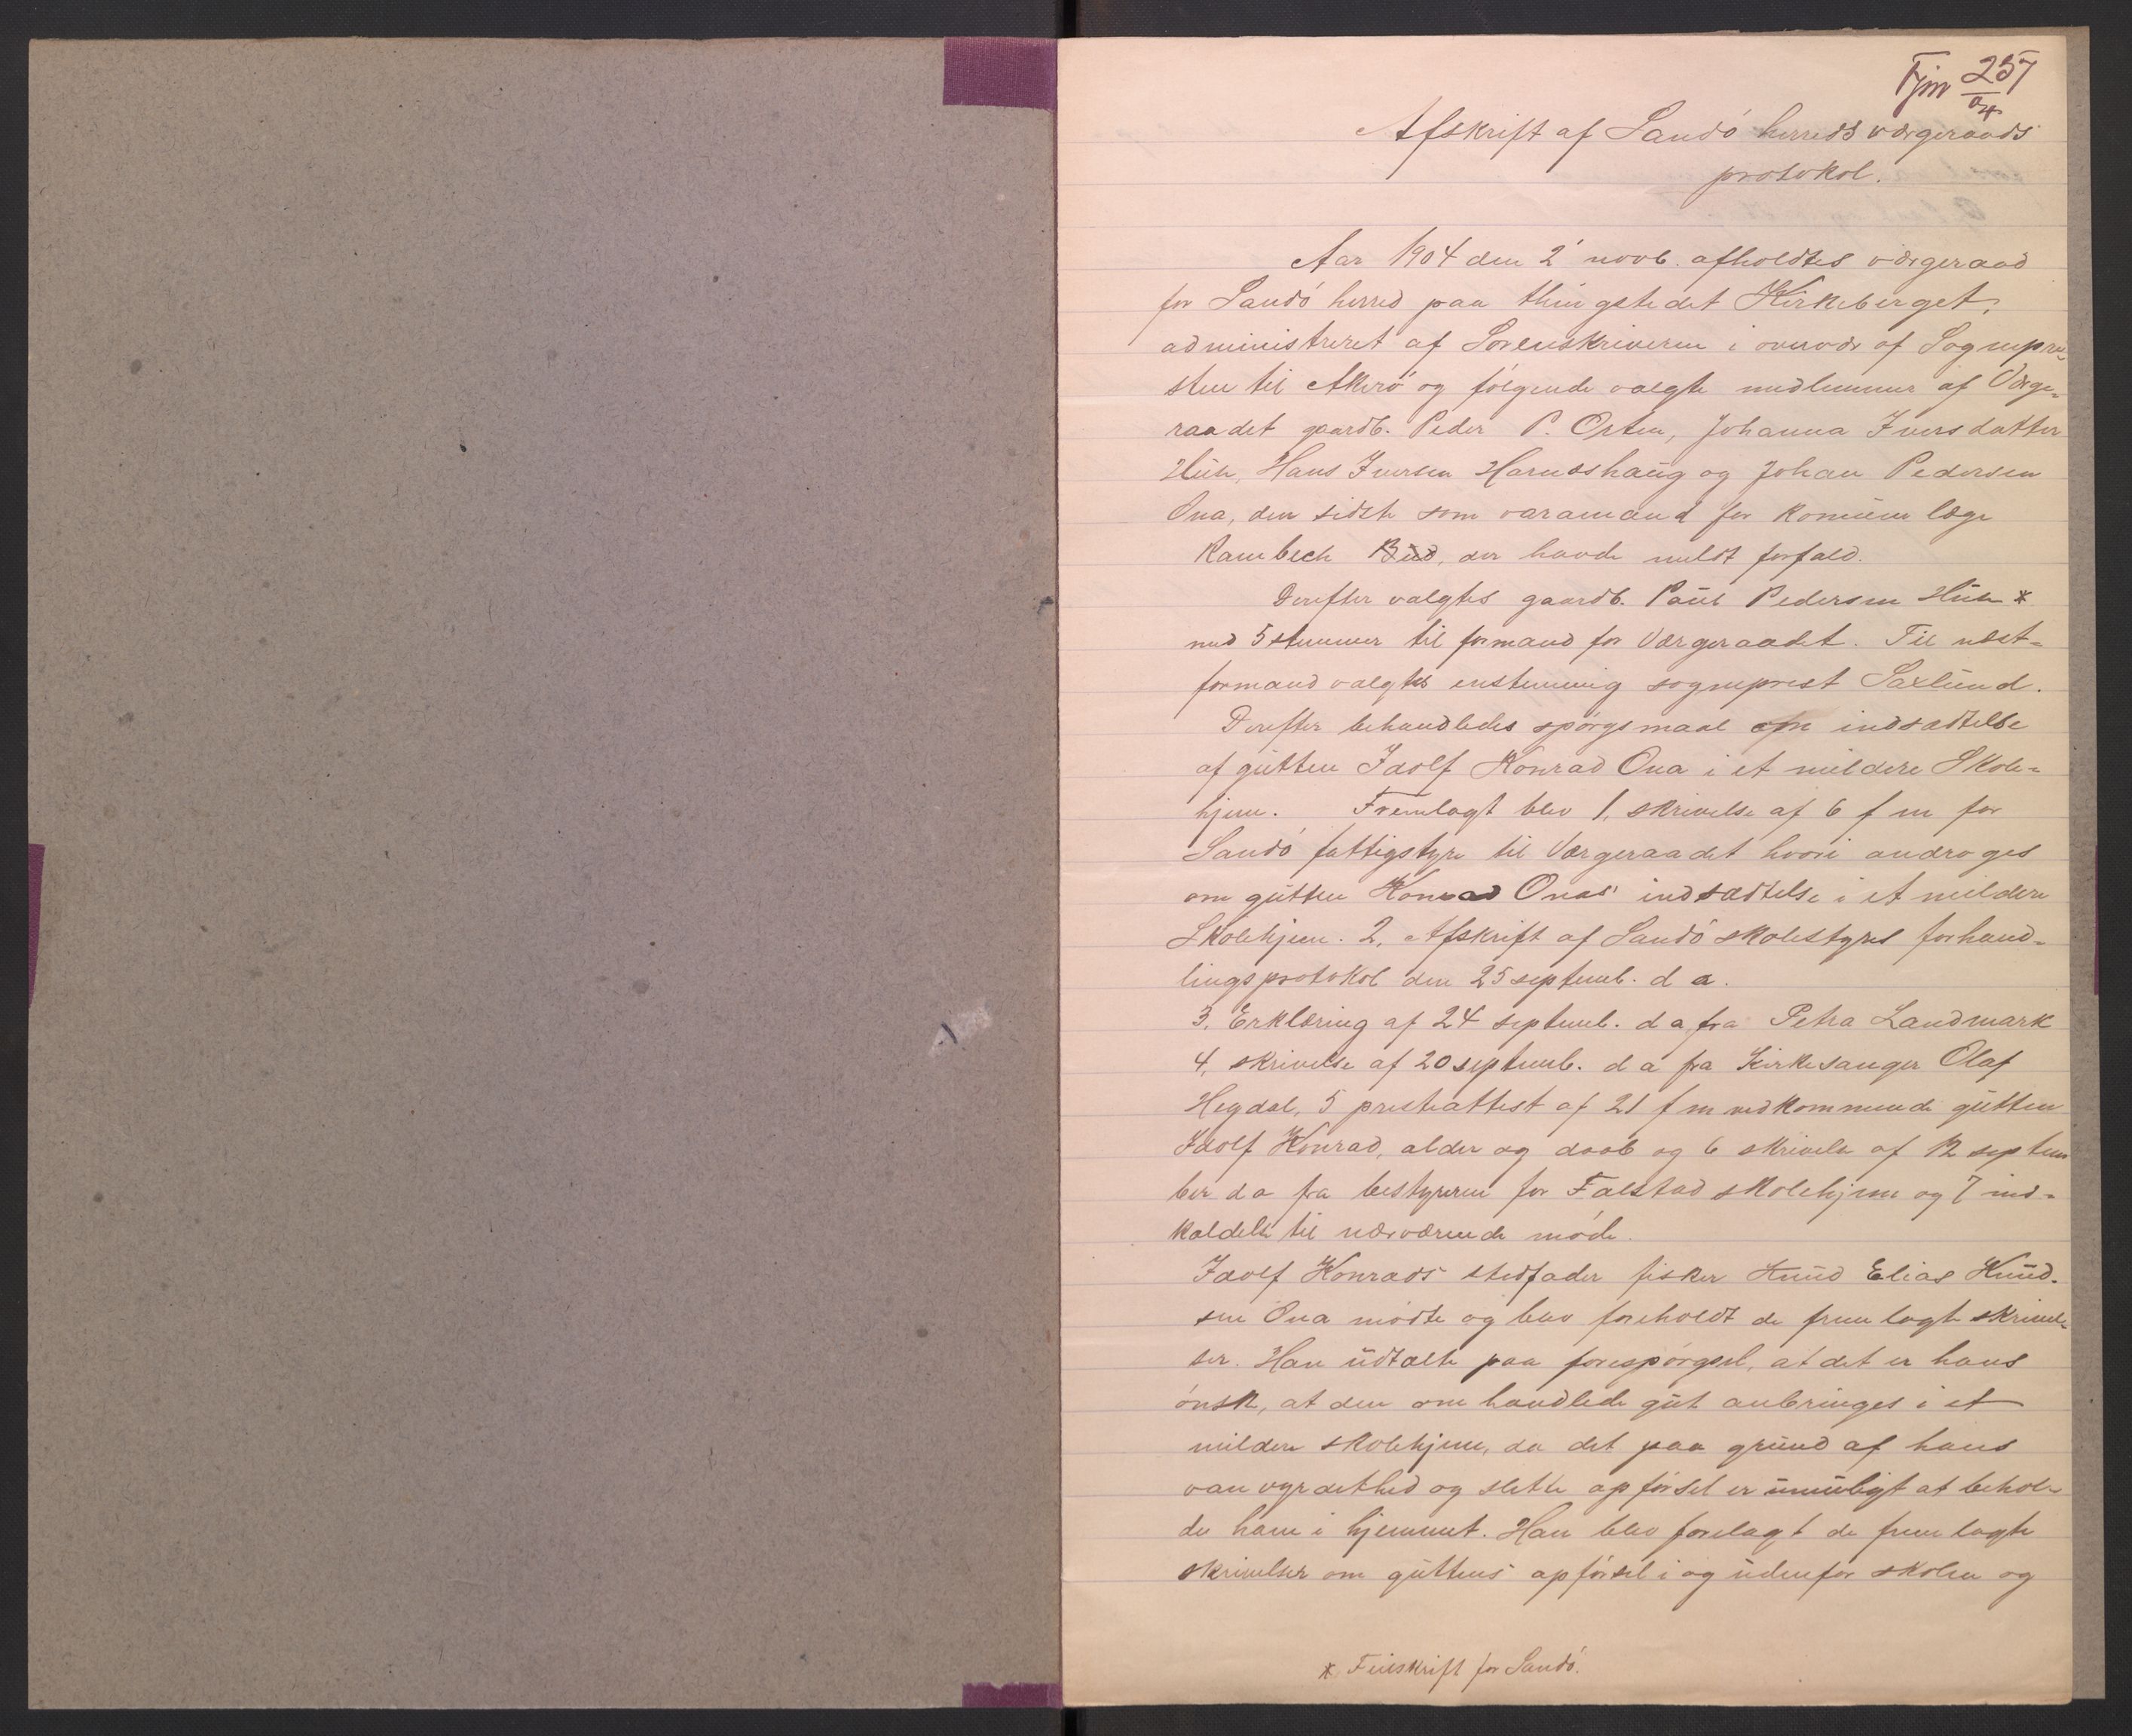 Fjm 257
04
Afskrift af Sandö herreds værgeraads
protokol.
Aar 1904 den 2' novb. afholdtes værgeraad
for Sandö herred paa thingstedet Kirkeberget,
administreret af Sorenskriveren i overvær af Sognepre-
sten til Akerö og følgende valgte medlemmer af Værge-
raadet gaardb. Peder P. Orten, Johanna Iversdatter
Huse, Hans Iversen Harnæshaug og Johan Pedersen
Ona, den sidste som varamand for kommunelæge
Rambech Bud, der havde meldt forfald.
Derefter valgtes gaardb. Paul Pedersen Huse *
med 5 stemmer til formand for Værgeraadet. Til næst-
formand valgtes enstemmig sogneprest Saxlund.
Derefter behandledes spørgsmaal om indsættelse
af gutten Idolf Konrad Ona i et mildere Skole-
hjem. Fremlagt blev 1, skrivelse af 6 f m for
Sandö fattigstyre til Værgeraadet hvori androges
om gutten Konrad Onas indsættelse i et mildere
Skolehjem. 2, Afskrift af Sandö skolestyres forhand-
lingsprotokol den 25 septemb. d a.
3, Erklæring af 24 septemb. d a fra Petra Landmark
4, skrivelse af 20 septemb. d a fra Kirkesanger Olaf
Hegdal, 5 presteattest af 21 f m vedkommende gutten
Idolf Konrad, alder og daab og 6 skrivelse af 12 septem
ber d a fra bestyreren for Falstad skolehjem og 7 ind-
kaldelse til nærværende møde.
Idolf Konrads stedfader fisker Knud Elias Knud-
sen Ona mødte og blev foreholdt de fremlagte skrivel-
ser. Han udtalte paa forespørgsel, at det er hans
ønsk, at den omhandlede gut anbringes i et
mildere skolehjem, da det paa grund af hans
vanvyrdethed og slette opførsel er umuligt at behol-
de ham i hjemmet. Han blev forelagt de fremlagte
skrivelser om guttens opførsel i og udenfor skolen og
* Feilskrift for Sandö.